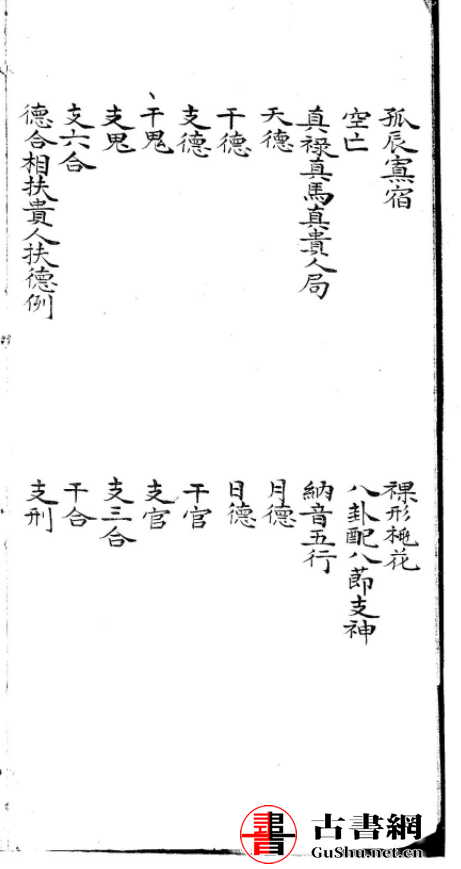 孤辰寡宿
裸形桃花
空亡
八卦配八節支神
真祿真馬真貴人局
納音五行
天德
月德
干德
日德
支德
干官
干鬼
支官
支鬼
支三合
支六合
干合
德合相扶貴人扶德例
支刑
古書網
GuShu.net.cn